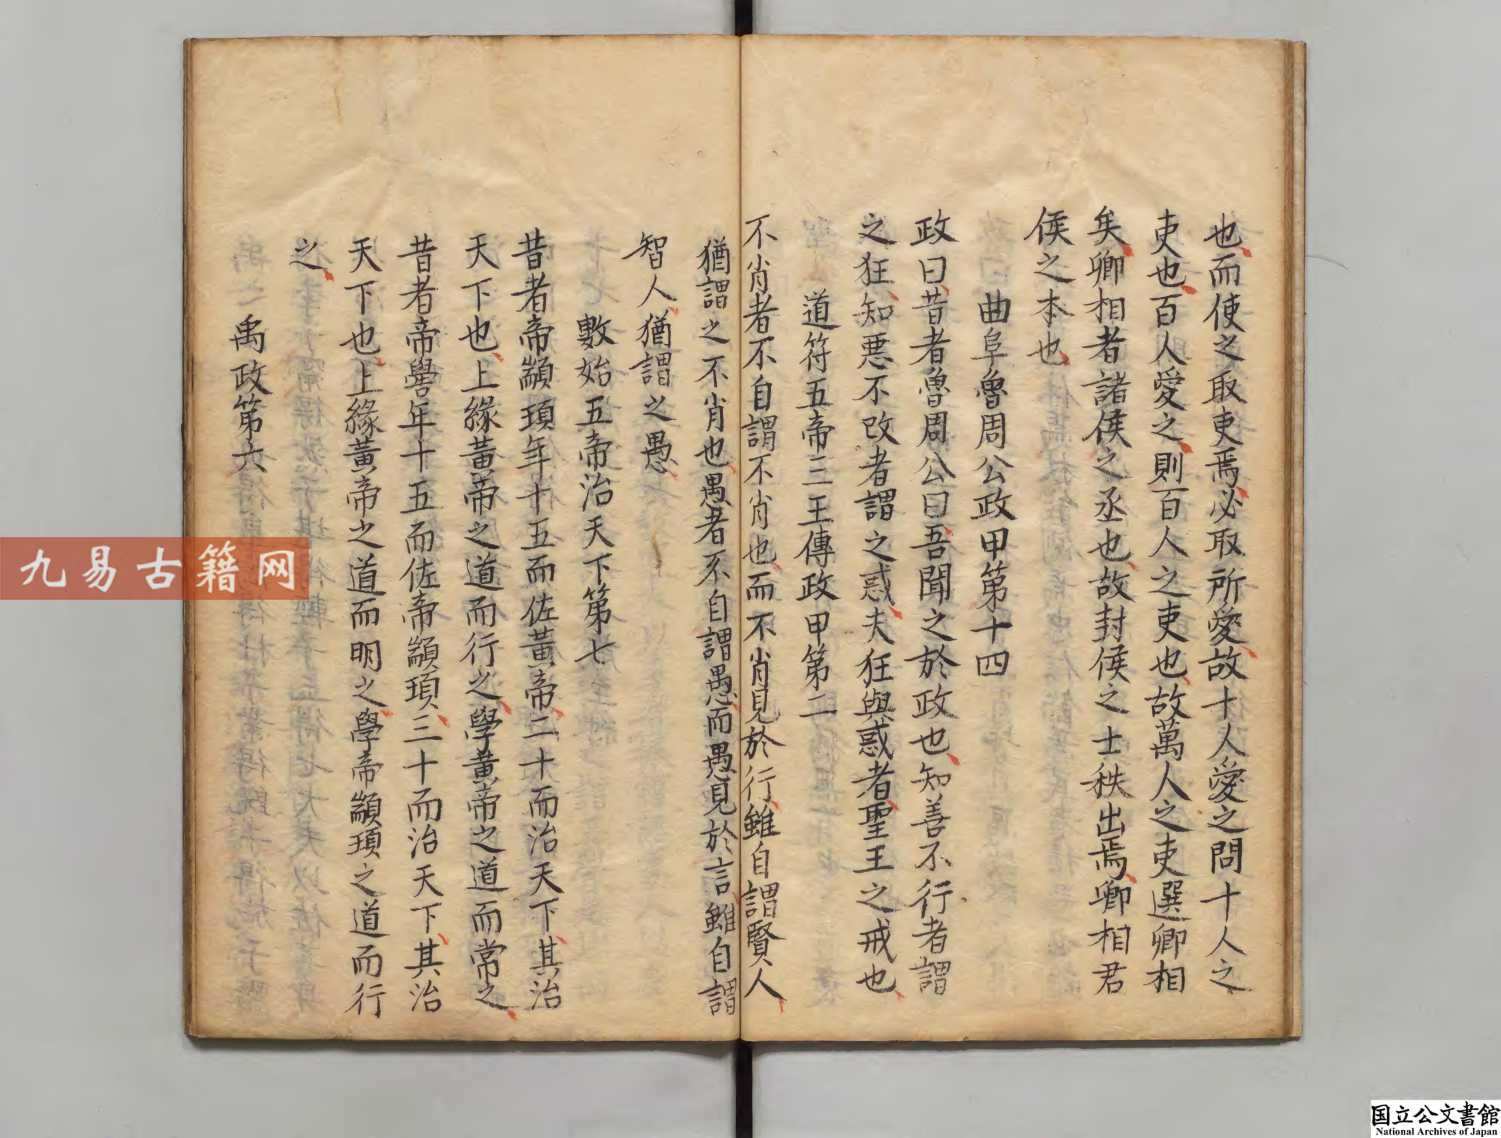 也而使之取吏焉必取所愛故十人愛之問十人之
吏也百人愛之則百人之吏也故萬人之吏選卿相
矣卿相者諸侯之丞也故封侯之士秩出焉卿相君
侯之本也
曲阜魯周公政甲第十四
政曰昔者魯周公曰吾聞之於政也知善不行者謂
之狂知惡不改者謂之惑夫狂與惑者聖王之戒也
道符五帝三王傳政甲第二
不肖者不自謂不肖也而不肖見於行雖自謂賢人
猶謂之不肖也愚者不自謂愚而愚見於言雖自謂
智人猶謂之愚
數始五帝治天下第七
昔者帝顓頊年十五而佐黃帝二十而治天下其治
天下也上緣黃帝之道而行之學黃帝之道而常之
昔者帝嚳年十五而佐帝顓頊三十而治天下其治
天下也上緣黃帝之道而明之學帝顓頊之道而行
之
禹政第六
九易古籍网
国立公文書館
National Archives of Japan